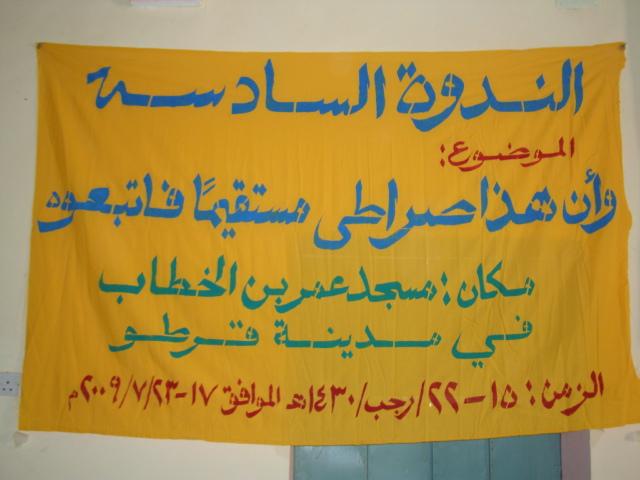 الندوة السادسة
الموضوع:
وأن هذا صراطي مستقيمًا فاتبعوه
مكان: مسجد عمر بن الخطاب
في مدينة قرطو
الزمن: ١٥-٢٢/رجب/١٤٣٠هـ الموافق ١٧-٢٣/٧/٢٠٠٩م